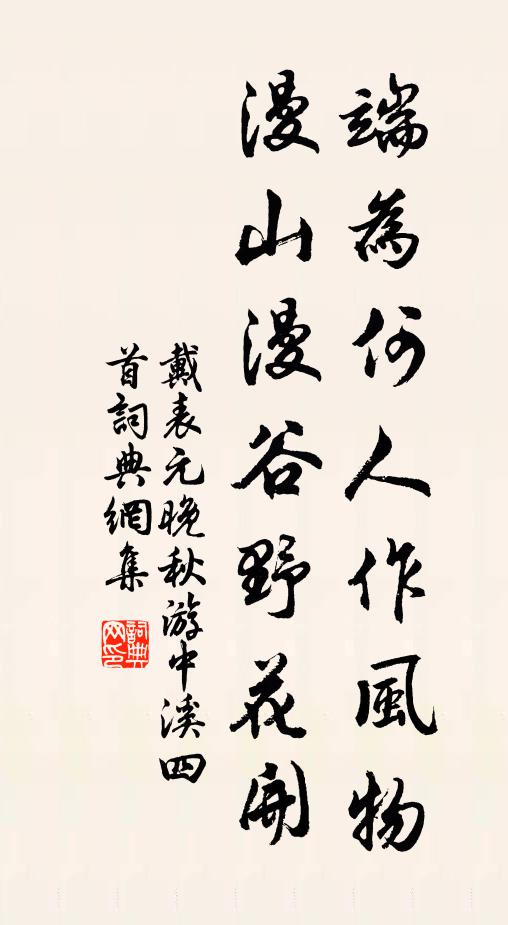 端為何人作風物
漫山漫谷野花開
戴表元晚秋游中溪四
首詞典網集
詞典網印